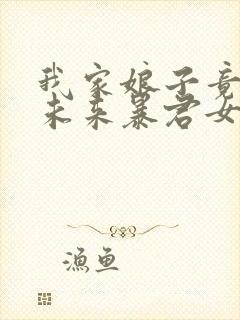 我家娘子竟
未来暴君女
渔鱼